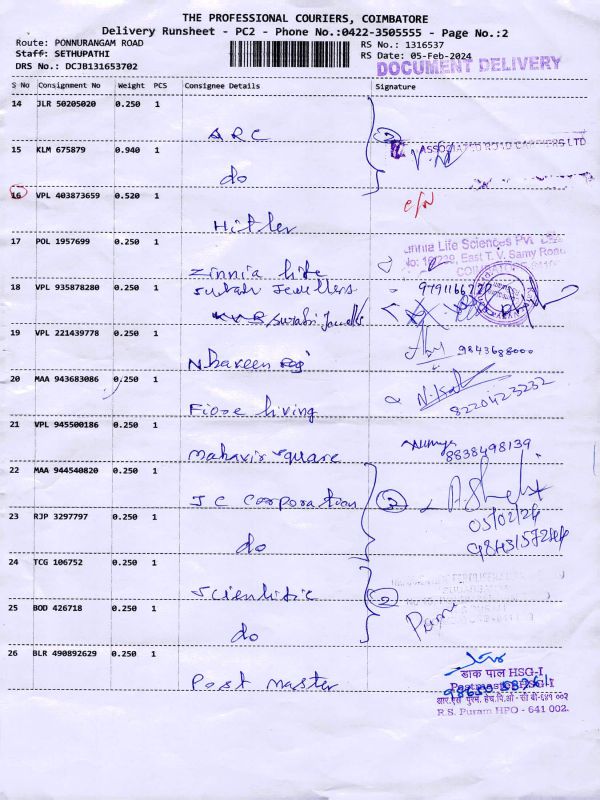 THE PROFESSIONAL COURIERS, COIMBATORE
Delivery Runsheet - PC2 - Phone No.:0422-3505555 - Page No.:2
Route: PONNURANGAM ROAD
RS No.: 1316537
Staff: SETHUPATHI
RS Date: 05-Feb-2024
DRS No.: DCJB131653702
DOCUMENT DELIVERY
S No Consignment No Weight PCS Consignee Details Signature
14 JLR 50205020 0.250 1
ARC
2
ASSOCIATED ROAD CARRIERS LTD
15 KLM 675879 0.940 1
do
16 VPL 403873659 0.520 1
Hitler
17 POL 1957699 0.250 1
Zinnia life
Zinnia Life Sciences Pvt
East T. V. Samy Road
COIMBATORE
18 VPL 935878280 0.250 1
Jewellers
19 VPL 221439778 0.250 1
Nhaveen
9843688000
20 MAA 943683086 0.250 1
living
8220423232
21 VPL 945500186 0.250 1
Mahavir square
8838498139
22 MAA 944540820 0.250 1
JC Corporation
2
23 RJP 3297797 0.250 1
do
05/02/24
24 TCG 106752 0.250 1
Scientific
2
25 BOD 426718 0.250 1
do
26 BLR 490892629 0.250 1
Post master
डाक पाल HSG-I
Postmaster HSG-I
R.S. Puram HPO - 641 002.